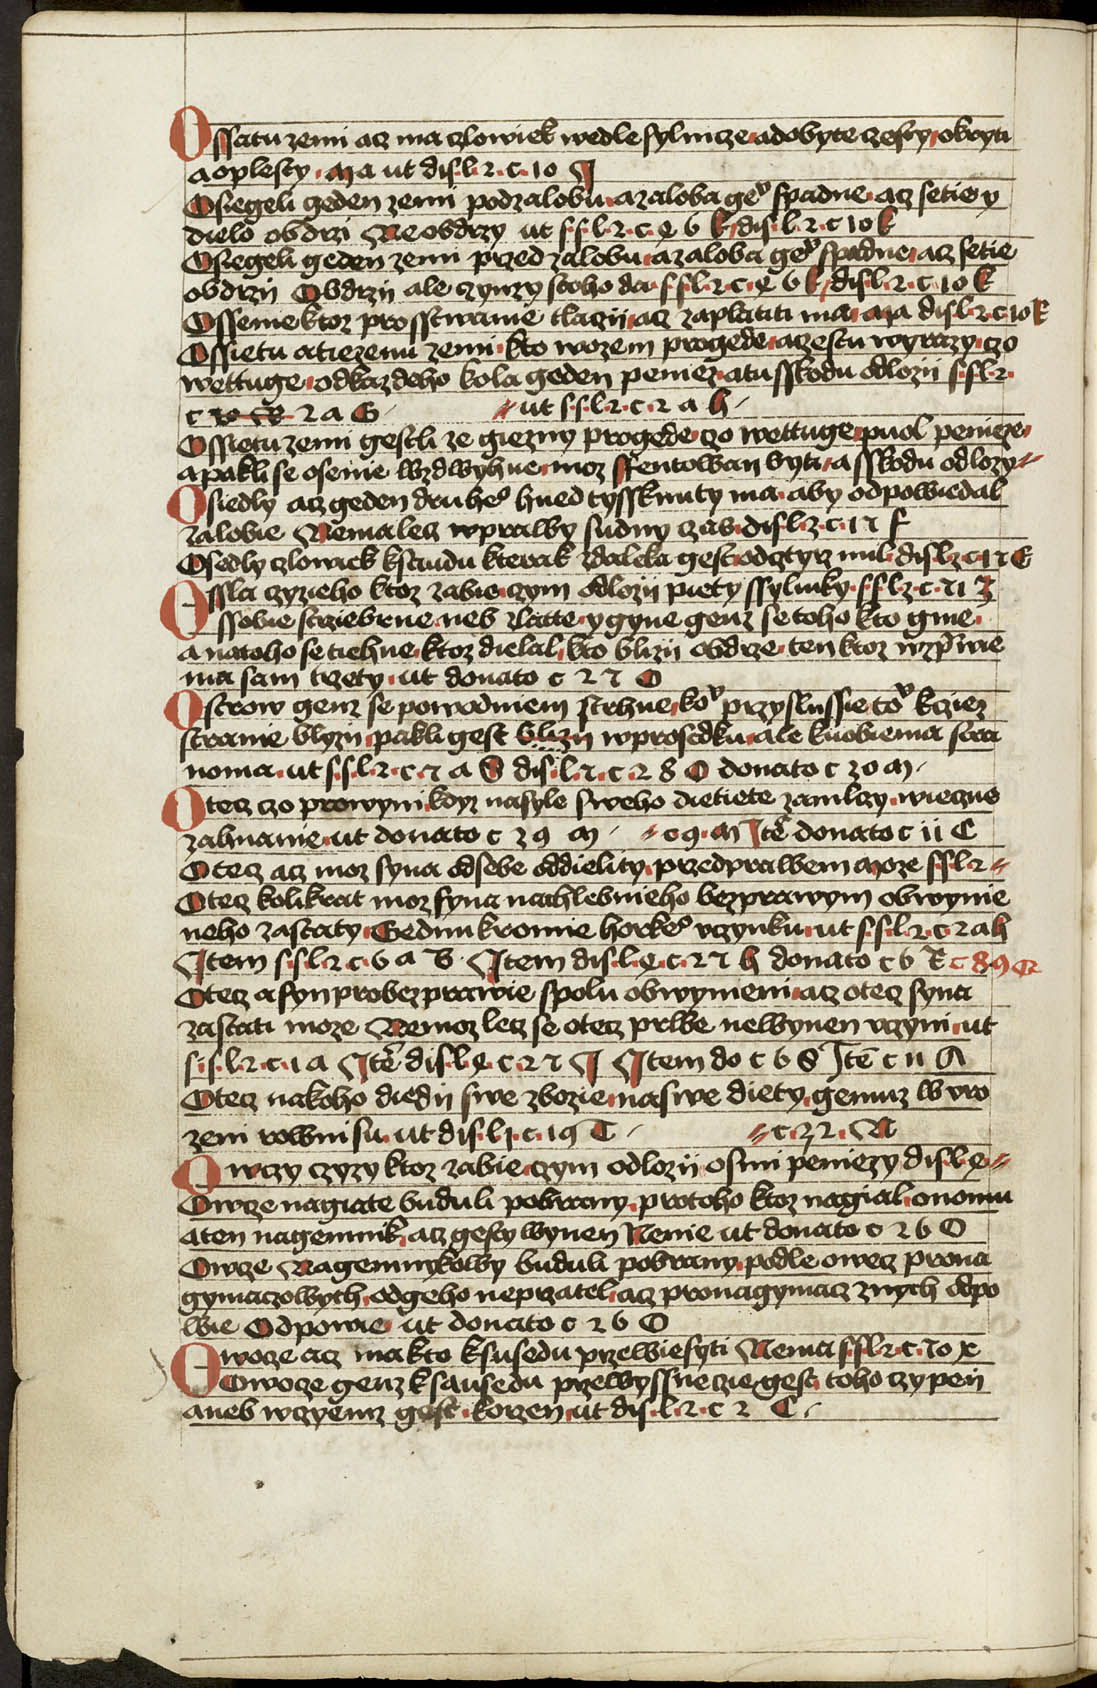 Ossatu zemi acz ma czlowiek wedle sylnicze a dobyte czesty okryti
a oplesty · Ma ut dis · l · 2 · c · 10 J
Osiegeli geden zemi pod zalobu · a zaloba geº spadne · acz setie y
dielo obdrzi Neobdrzy ut s · s · l · 2 · c · 4 6 k dis · l · 2 · c 10 k
Osiegeli geden zemi przed zalobu · a zaloba geº spadne · acz setie
obdrzij Obdrzij ale czynzy stoho da · s s l · 2 · c · 4 6 k dis · l · 2 · c · 10 k
Ossenie ktoz prosstwanie tlaczij · acz zaplatiti ma · Ma dis l · 2 · c 10 k
Ossietu a tiezenu zemi · kto wozem progede · acz estu wyrazy · czo
wettuge · od kazdeho kola geden peniez · a tu sskodu odlozij s s l · 2 ·
c 2 a G · ut s s · l · 2 · c · 2 a h ·
Ossietu zemi gestli ze giezny progede · czo wettuge · puol penieze ·
a pakli se osenie wzdwyhne · moz ffentowan byti · a sskodu odlozy
Osiedly acz geden druheº hned tyssknuty ma · aby odpowiedal
zalobie Nema lecz w prawy sudny czas · dis l 2 · c · 17 f
Osedly czlowiek k saudu kterak zdaleka gest · od cztyrz mil · dis l 2 c 17 E
Ossla czyzieho ktoz zabie · czym odlozij piety ssylinky · s s · l 2 · c · 71 J
Ossobie strziebrne · neb zlatte · y gyne genz se toho kto gme ·
a na toho se tiehne · ktoz dielal · kto blizij obdrze · ten ktoz w prwie
ma sam trzety · ut donato c 2 7 O
Ostrow genz se powodniem strhne · koº przyslussie toº k cziez
stranie blyzn · pakli gest blizn w prostdku · ale k uobiema stra
noma · ut s · s · l · 2 · c · 7 a B dis · l · 7 · c · 2 8 O donato c 20 M ·
Otecz czo prowyni · kdyz nasyle sweho dietiete zamlczy · wieczne
zahnanie · ut donato c 29 M · c 9 · M Ite donato c 11 C
Otecz acz moz syna od sebe oddielity · przed prawem Moze s s l · 2
Otecz kolikrat moz syna na chlebnieho bezprawym obwynie
neho zastaty · Gednu kromie horkeº uczynku · ut s · s · l · 2 · c · 2 a h
Item s · s · l · 2 c · 6 a B · Item dis · l · 4 · c · 27 h donato c 6 R c 89 Q
Otecz a syn pro bezprawie spolu obwynieni · acz otecz syna
zastati moze Nemoz lecz se otecz prwe newynen uczyni · ut
s · s · l · 2 · c · 1 a Ite dis · l · 4 · c · 27 J Item do c 6 S Ite c 11 A
Otecz na koho diedij swe zbozie · na swe diety · gemuz w uro
zeni rowni su · ut dis · l 1 · c · 19 T · c · 22 · N
Owczy czyzy ktoz zabie · czym odlozij · osmi peniezy dis · l · 4
Owcze nagiate buduli pobrany · protoho ktoz nagial · onomu
a ten nagemnik · acz gesty wynen Nenie ut donato c 26 O
Owcze Nagemnykowy buduli pobrany · podle owecz prona
gymaczowych · od geho neprzatel · acz pronagymacz z nych odpo
wie Odpowie ut donato c 26 O
Owocze acz ma kto k susedu przewiesyti Nema s s l · 2 · c · 70 x
Owocze genz k sausedu przewyssne czie · gest toho czy pen
a neb w czyemz gest · korzen · ut dis · l · 2 · c 2 C ·